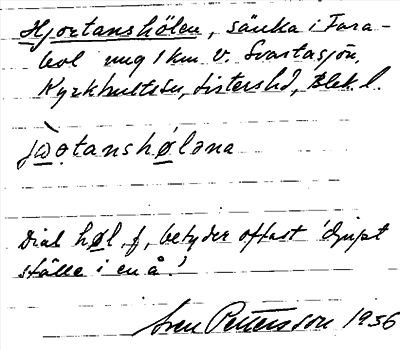 Hjortanshölen, sänka i Fara-
bol ung 1 km v. Svartasjön,
Kyrkhults sn, Listers hd, Blek. l.
jωo̤tanshøləna
Dial høl f, betyder oftast 'djupt
ställe i en å'.
Sven Pettersson 1956